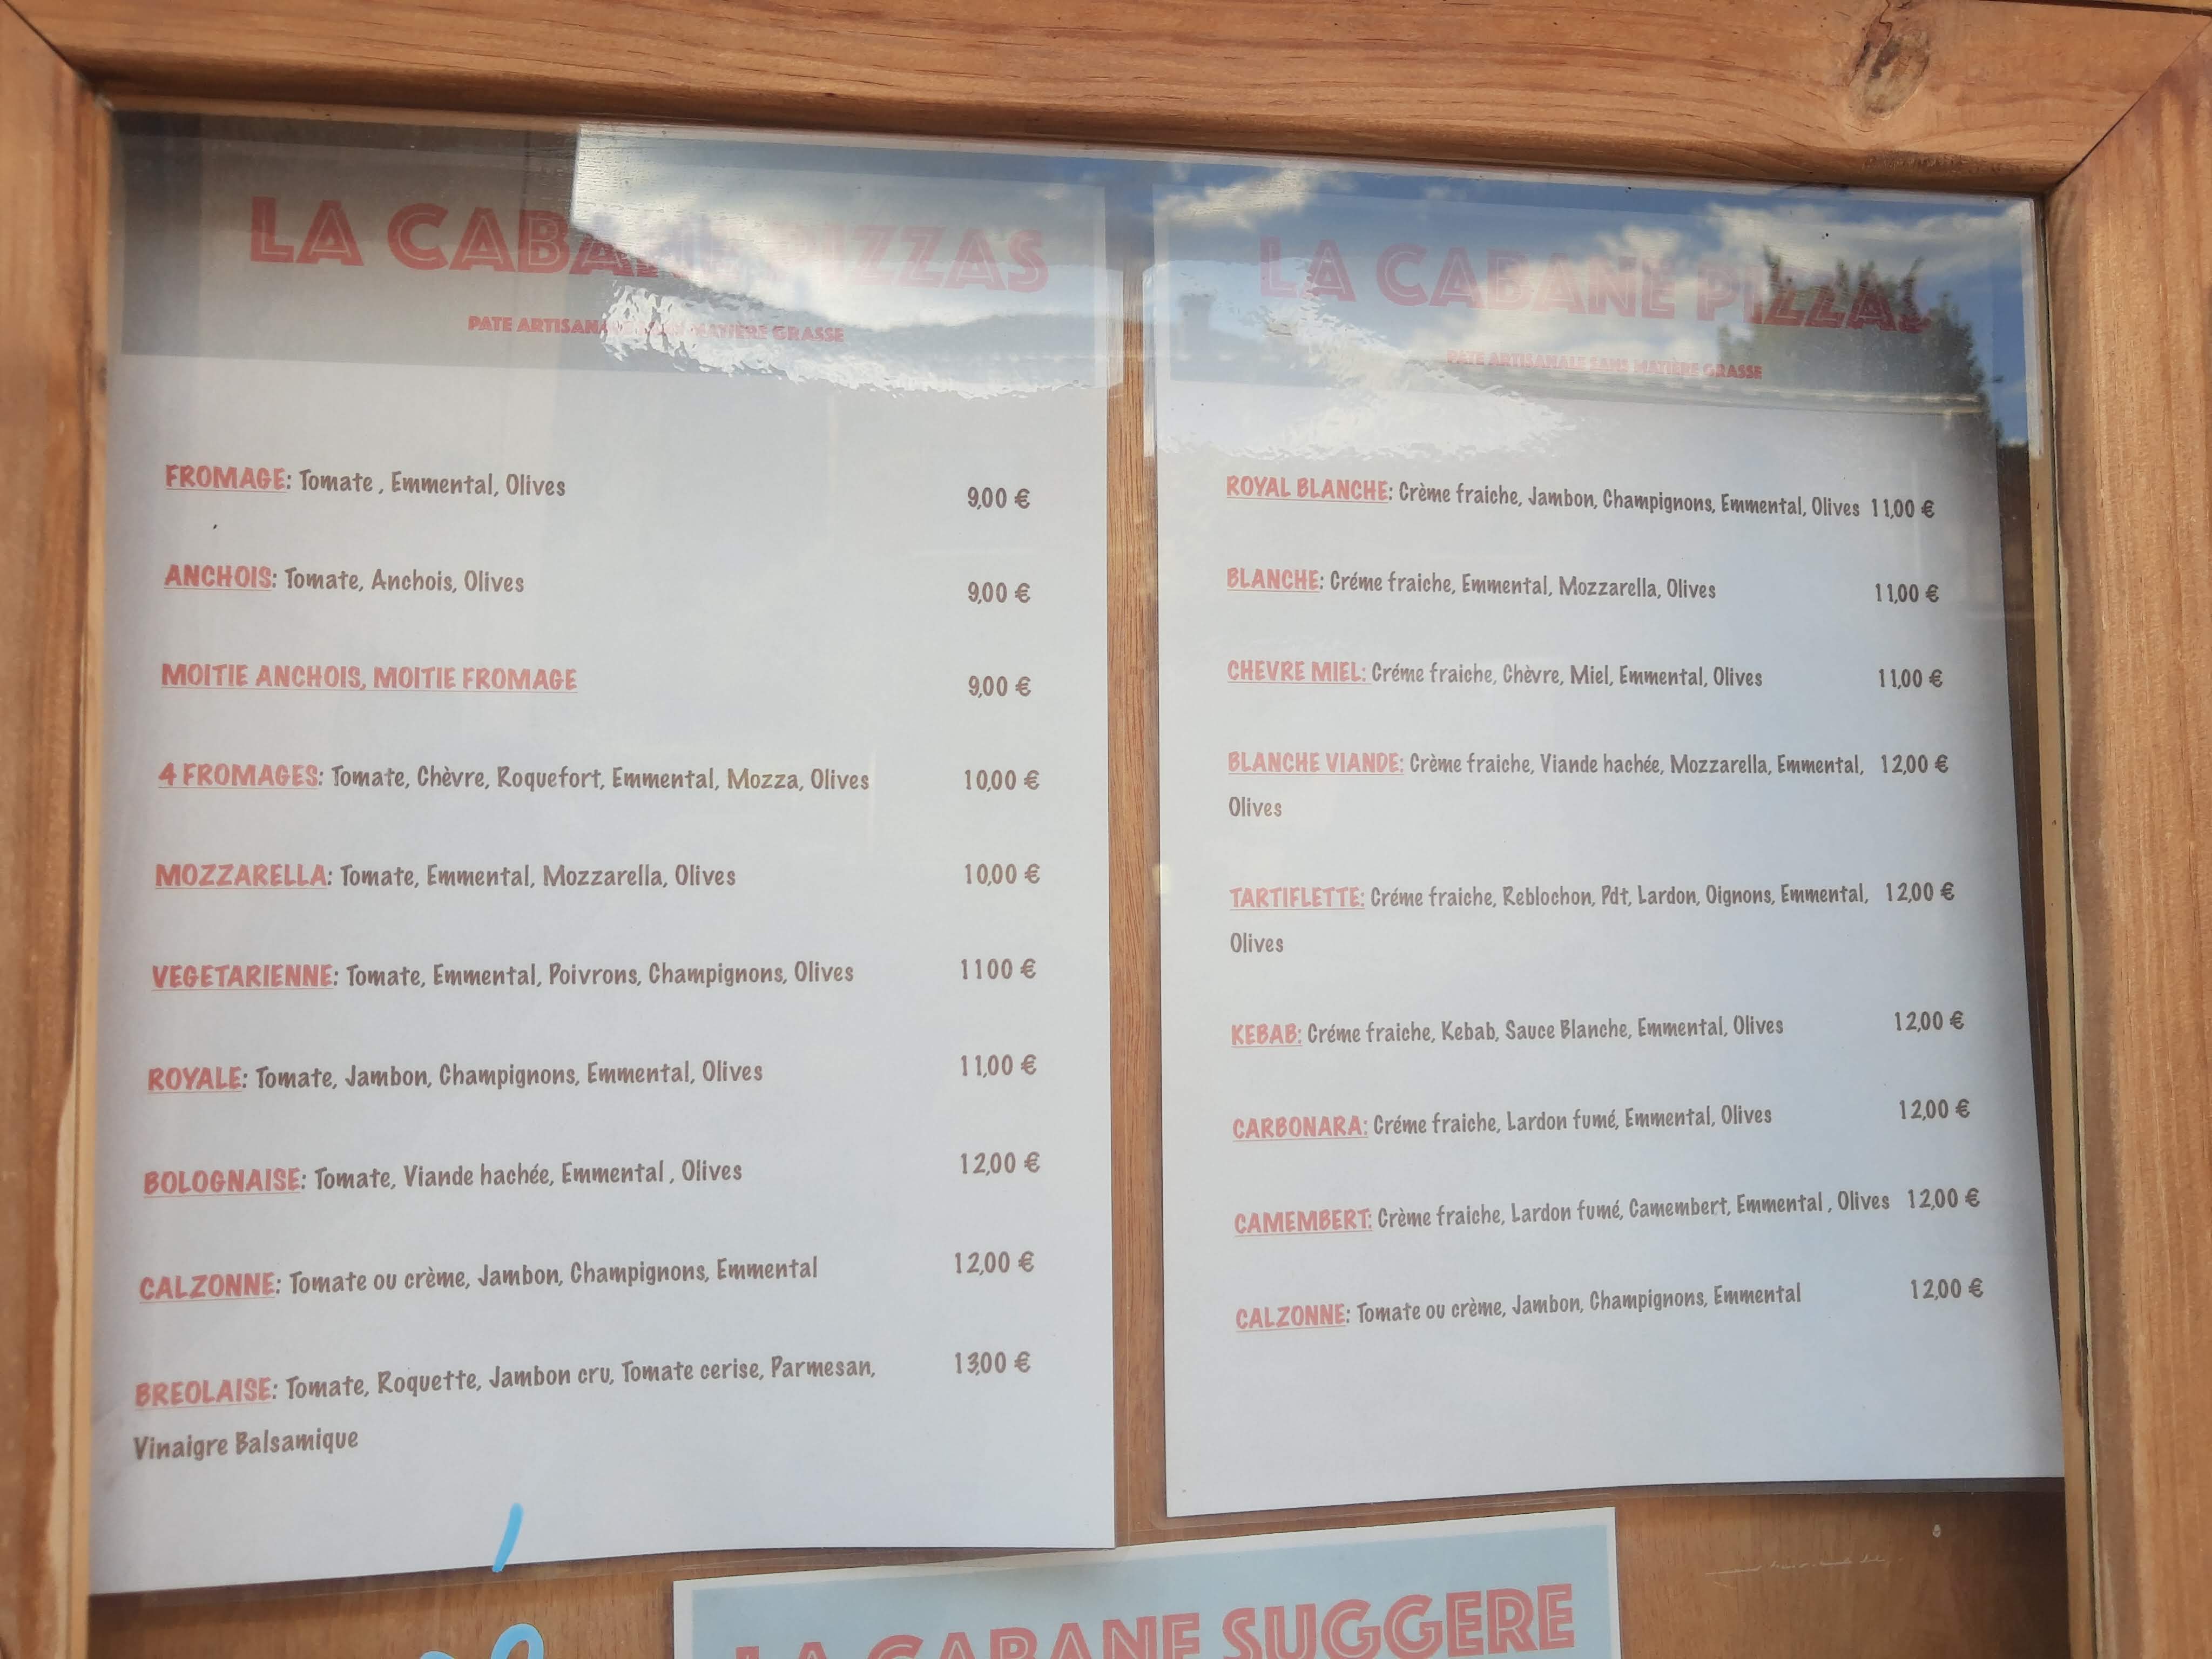 LA CABANE PIZZAS
PATE ARTISANALE SANS MATIÈRE GRASSE
FROMAGE: Tomate , Emmental, Olives 9,00 €
ANCHOIS: Tomate, Anchois, Olives 9,00 €
MOITIE ANCHOIS, MOITIE FROMAGE 9,00 €
4 FROMAGES: Tomate, Chèvre, Roquefort, Emmental, Mozza, Olives 10,00 €
MOZZARELLA: Tomate, Emmental, Mozzarella, Olives 10,00 €
VEGETARIENNE: Tomate, Emmental, Poivrons, Champignons, Olives 1100 €
ROYALE: Tomate, Jambon, Champignons, Emmental, Olives 11,00 €
BOLOGNAISE: Tomate, Viande hachée, Emmental , Olives 12,00 €
CALZONNE: Tomate ou crème, Jambon, Champignons, Emmental 12,00 €
BREOLAISE: Tomate, Roquette, Jambon cru, Tomate cerise, Parmesan, 13,00 €
Vinaigre Balsamique
LA CABANE PIZZAS
PATE ARTISANALE SANS MATIÈRE GRASSE
ROYAL BLANCHE: Crème fraiche, Jambon, Champignons, Emmental, Olives 11,00 €
BLANCHE: Créme fraiche, Emmental, Mozzarella, Olives 11,00 €
CHEVRE MIEL: Créme fraiche, Chèvre, Miel, Emmental, Olives 11,00 €
BLANCHE VIANDE: Crème fraiche, Viande hachée, Mozzarella, Emmental, 12,00 €
Olives
TARTIFLETTE: Créme fraiche, Reblochon, Pdt, Lardon, Oignons, Emmental, 12,00 €
Olives
KEBAB: Créme fraiche, Kebab, Sauce Blanche, Emmental, Olives 12,00 €
CARBONARA: Créme fraiche, Lardon fumé, Emmental, Olives 12,00 €
CAMEMBERT: Crème fraiche, Lardon fumé, Camembert, Emmental , Olives 12,00 €
CALZONNE: Tomate ou crème, Jambon, Champignons, Emmental 12,00 €
LA CABANE SUGGERE